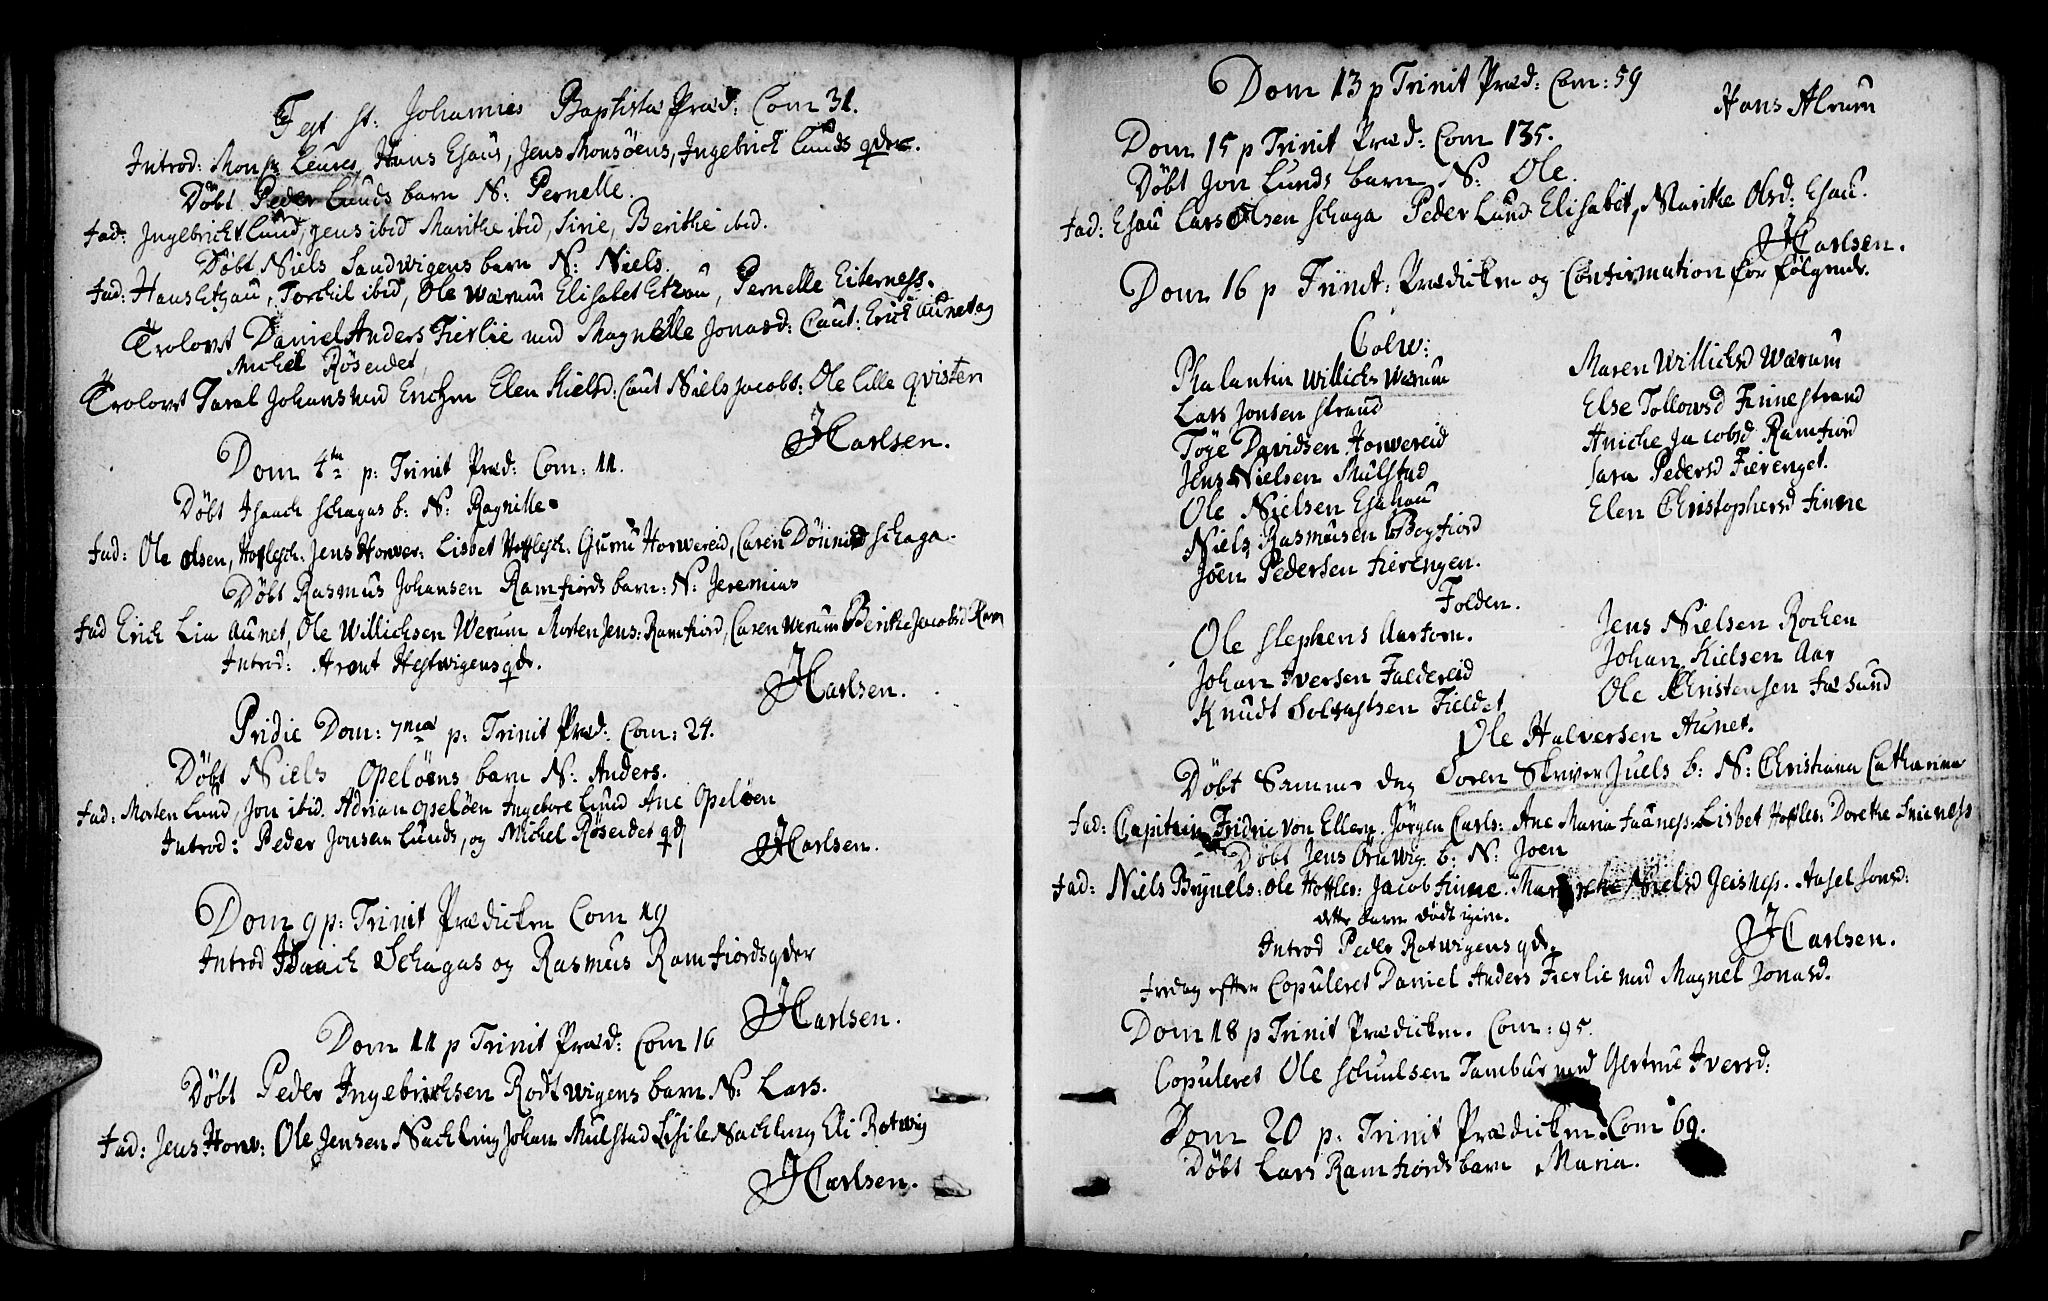 Fest st: Johannis Baptistæ Præd: Com 31.
Introd: Hans Esaus, Jens Monsöens, Ingebrict Lunds qdr.
Döbt Peder Lunds barn N: Pernelle.
Fad: Ingebricht Lund, Jens ibid Marithe ibid, Sirie, Berithe ibid.
Döbt Niels Sandwigens barn N: Niels.
Fad: Hans Etzau, Torchil ibid, Ole Wærum Elisabet Etzau, Pernelle Eiterness.
Trolovet Daniel Anders Fierlie med Magnelle Jonasd: Caut: Erick Aunet og
Michel Röseidet
Trolovet Taral Johans med Enchen Elen Kielsd: Caut Niels Jacobs: Ole Lille qvisten
JHCarlsen.
Dom 4ta p: Trinit Præd: Com: 11.
Döbt Isaach Schagas b: N: Ragnille
Fad: Ole Olsen, Hofflesch: Jens Horver: Lisbet Hofflesch: Guru Horwereid, Caren Dönnes Schaga.
Döbt Rasmus Johansen Ramfiords barn: N: Jeremias
Fad Erich Lia Aunet, Ole Willichsen Werum Morten Jens: Ramfiord, Caren Werum Berithe Jacobsd Ram
Introd: Arent Hestwigens qdr.
JHCarlsen.
Pridie Dom: 7ma p: Trinit Præd: Com: 24.
Döbt Niels Opelöens barn N: Anders.
Fad: Morten Lund, Jon ibid. Adrian Opelöen Ingebore Lund Ane Opelöen
Introd: Peder Jonsen Lunds, og Michel Röseidet qdr
JHCarlsen.
Dom 9 p: Trinit Prædicken Com 19
Introd Isaach Schagas og Rasmus Ramfiords qder
JHCarlsen.
Dom 11 p Trinit Præd: Com 16
Döbt Peder Ingebrichsen Rodtwigens barn N: Lars.
Fad: Jens Horv: Ole Jensen Nachling Johan Mulstad Lisile Nachling Eli Rotwig
JHCarlsen.
Dom 13 p Trinit Præd: Com: 59
Hans Alrum
Dom 15 p Trinit Præd: Com 135.
Döbt Jon Lunds barn N: Ole.
Fad: Esau Lars Olsen Schaga Peder Lund Elisabet, Marithe Olsd: Esau.
JHCarlsen.
Dom 16 p Trinit: Prædicken og Confirmation for fölgende.
Colw:
Phalantin Willichs Wærum
Lars Jonsen Strand
Töge Davidsen Horvereid
Jens Nielsen Mulstad
Ole Nielsen Esahau
Niels Rasmusen Bogfiord
Joen Pedersen Fierengen.
Maren Willichsd Wærum
Else Tollowsd Finnestrand
Aniche Jacobsd Ramfiord
Sara Pedersd Fierenget.
Elen Christophersd Finne
Folden.
Ole Stephens Aarforn.
Johan Iversen Faldereid
Knudt Solvestsen Fieldet
Jens Nielsen Rochen
Johan Kielsen Aar
Ole Christensen Faresund
Ole Halversen Aunet.
Döbt Samme dag Sören Skriver Juels b: N: Christiana Catharina
Fad: Capitain Fridric von Ellern. Jörgen Carls: Ane Maria Faaness: Lisbet Hoffles: Dorethe Snieness
Döbt Jens Örawig b: N: Joen
Fad: Niels Brynels: Ole Hoffles: Jacob Finne. Margrethe Nielsd Jeisness. Aasel Jonsd:
dette barn dödt igien.
Introd Peder Rotwigens qdr.
JHCarlsen.
Fredag efter Copuleret Daniel Anders Fierlie med Magnel Jonasd.
Dom 18 p Trinit Prædicken. Com: 95.
Copuleret Ole Schulsen Tambur med Giertrue Iversd:
Dom 20 p: Trinit Prædicken. Com 69.
Döbt Lars Ramfiords barn Maria.